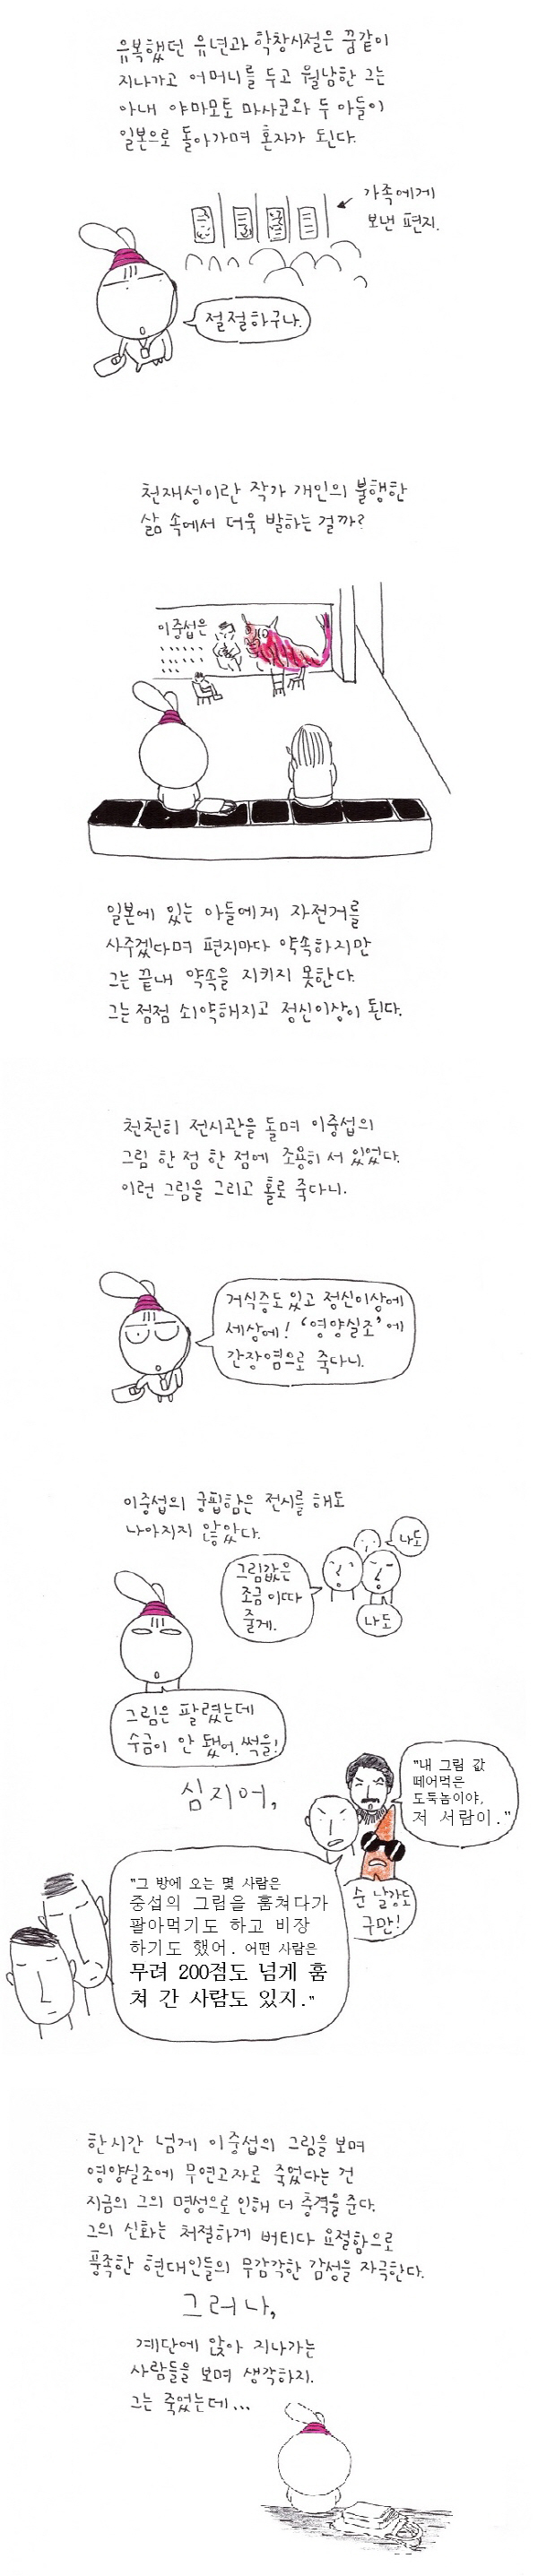 유복했던 유년과 학창시절은 꿈같이
지나가고 어머니를 두고 월남한 그는
아내 야마모토 마사코와 두 아들이
일본으로 돌아가며 혼자가 된다.
가족에게
보낸 편지.
절절하구나.
천재성이란 작가 개인의 불행한
삶 속에서 더욱 발하는 걸까?
이중섭은
일본에 있는 아들에게 자전거를
사주겠다며 편지마다 약속하지만
그는 끝내 약속을 지키지 못한다.
그는 점점 쇠약해지고 정신이상이 된다.
천천히 전시관을 돌며 이중섭의
그림 한 점 한 점에 조용히 서 있었다.
이런 그림을 그리고 홀로 죽다니.
거식증도 있고 정신이상에
세상에! '영양실조'에
간장염으로 죽다니.
이중섭의 궁핍함은 전시를 해도
나아지지 않았다.
나도
그림값은
조금 이따
줄게.
나도
그림은 팔렸는데
수금이 안 됐어. 썩을!
심지어,
"내 그림 값
떼어먹은
도둑놈이야,
저 서람이."
순 날강도
구만!
"그 방에 오는 몇 사람은
중섭의 그림을 훔쳐다가
팔아먹기도 하고 비장
하기도 했어. 어떤 사람은
무려 200점도 넘게 훔
쳐 간 사람도 있지."
한시간 넘게 이중섭의 그림을 보며
영양실조에 무연고자로 죽었다는 건
지금의 그의 명성으로 인해 더 충격을 준다.
그의 신화는 처절하게 버티다 요절함으로
풍족한 현대인들의 무감각한 감성을 자극한다.
그러나,
계단에 앉아 지나가는
사람들을 보며 생각하지.
그는 죽었는데...